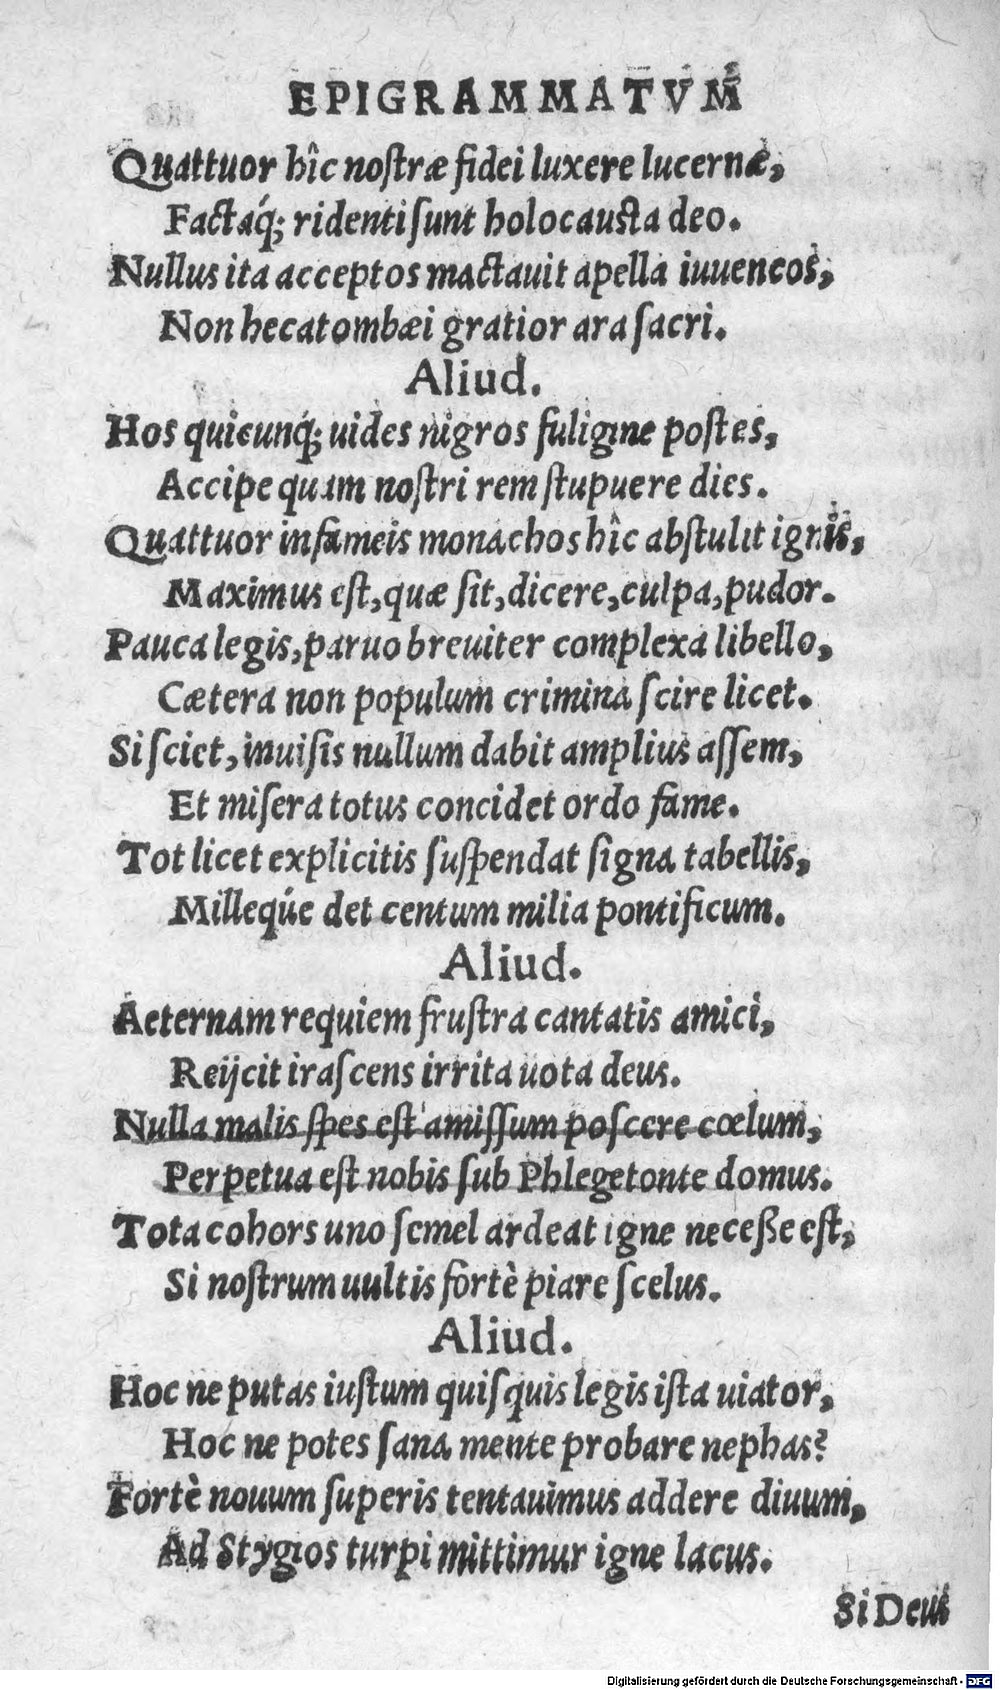 EPIGRAMMATVM
Quattuor hîc nostræ fidei luxere lucernæ,
Factaq́; ridenti sunt holocausta deo.
Nullus ita acceptos mactauit apella iuuencos,
Non hecatombæi gratior ara sacri.
Aliud.
Hos quicunq́; uides nigros fuligine postes,
Accipe quam nostri rem stupuere dies.
Quattuor infameis monachos hîc abstulit ignis,
Maximus est, quæ sit, dicere, culpa, pudor.
Pauca legis, paruo breuiter complexa libello,
Cætera non populum crimina scire licet.
Si sciet, inuisis nullum dabit amplius assem,
Et misera totus concidet ordo fame.
Tot licet explicitis suspendat signa tabellis,
Milleq́ue det centum milia pontificum.
Aliud.
Aeternam requiem frustra cantatis amici,
Reijcit irascens irrita uota deus.
Nulla malis spes est amissum poscere cœlum,
Perpetua est nobis sub Phlegetonte domus.
Tota cohors uno semel ardeat igne neceße est,
Si nostrum uultis fortè piare scelus.
Aliud.
Hoc ne putas iustum quisquis legis ista uiator,
Hoc ne potes sana mente probare nephas?
Fortè nouum superis tentauimus addere diuum,
Ad Stygios turpi mittimur igne lacus.
Si Deus
Digitalisierung gefördert durch die Deutsche Forschungsgemeinschaft - DFG